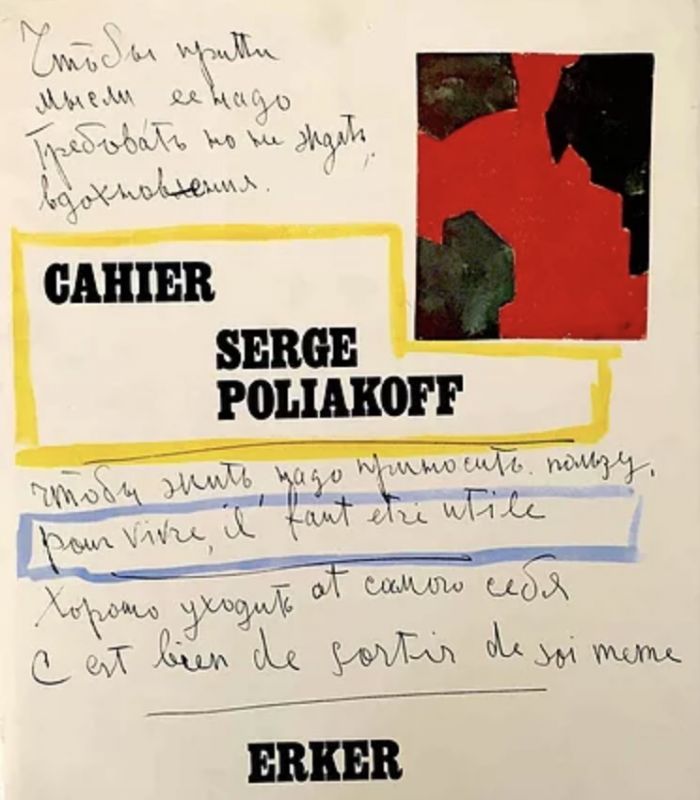 Чтобы притти
мысли ее надо
требовать но не ждать,
вдохновения.
CAHIER
SERGE
POLIAKOFF
чтобы жить, надо приносить пользу.
pour vivre, il faut etre utile
Хорошо уходить at самого себя
C est bien de sortir de soi meme
ERKER